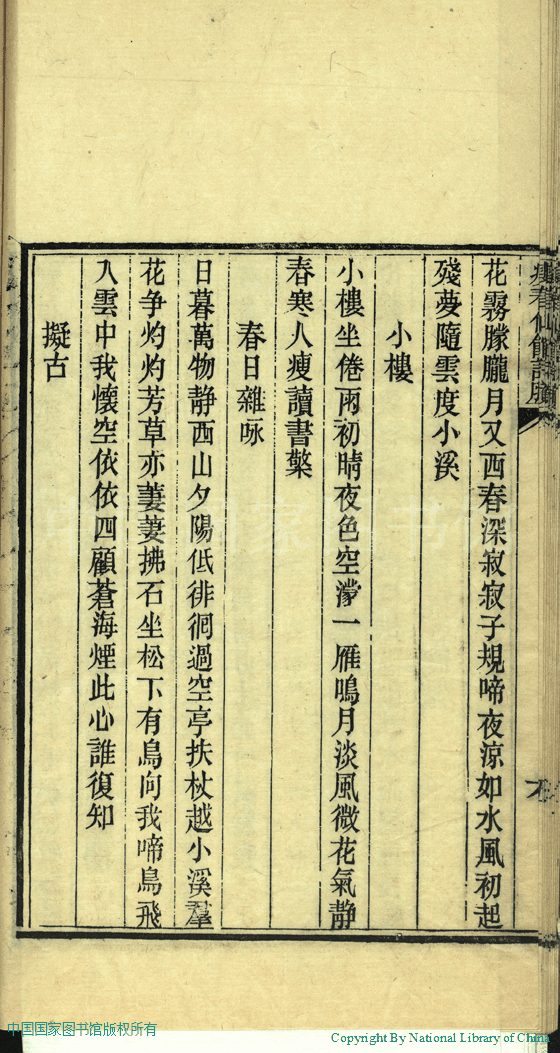 花霧朦朧月又西春深寂寂子規啼夜涼如水風初起
殘夢隨雲度小溪
小樓
小樓坐倦雨初晴夜色空濛一雁鳴月淡風微花氣靜
春寒人瘦讀書檠
春日雜咏
日暮萬物靜西山夕陽低徘徊過空亭扶杖越小溪羣
花争灼灼芳草亦萋萋拂石坐松下有鳥向我啼鳥飛
入雲中我懷空依依四顧蒼海煙此心誰復知
擬古
中国国家图书馆版权所有
Copyright By National Library of China